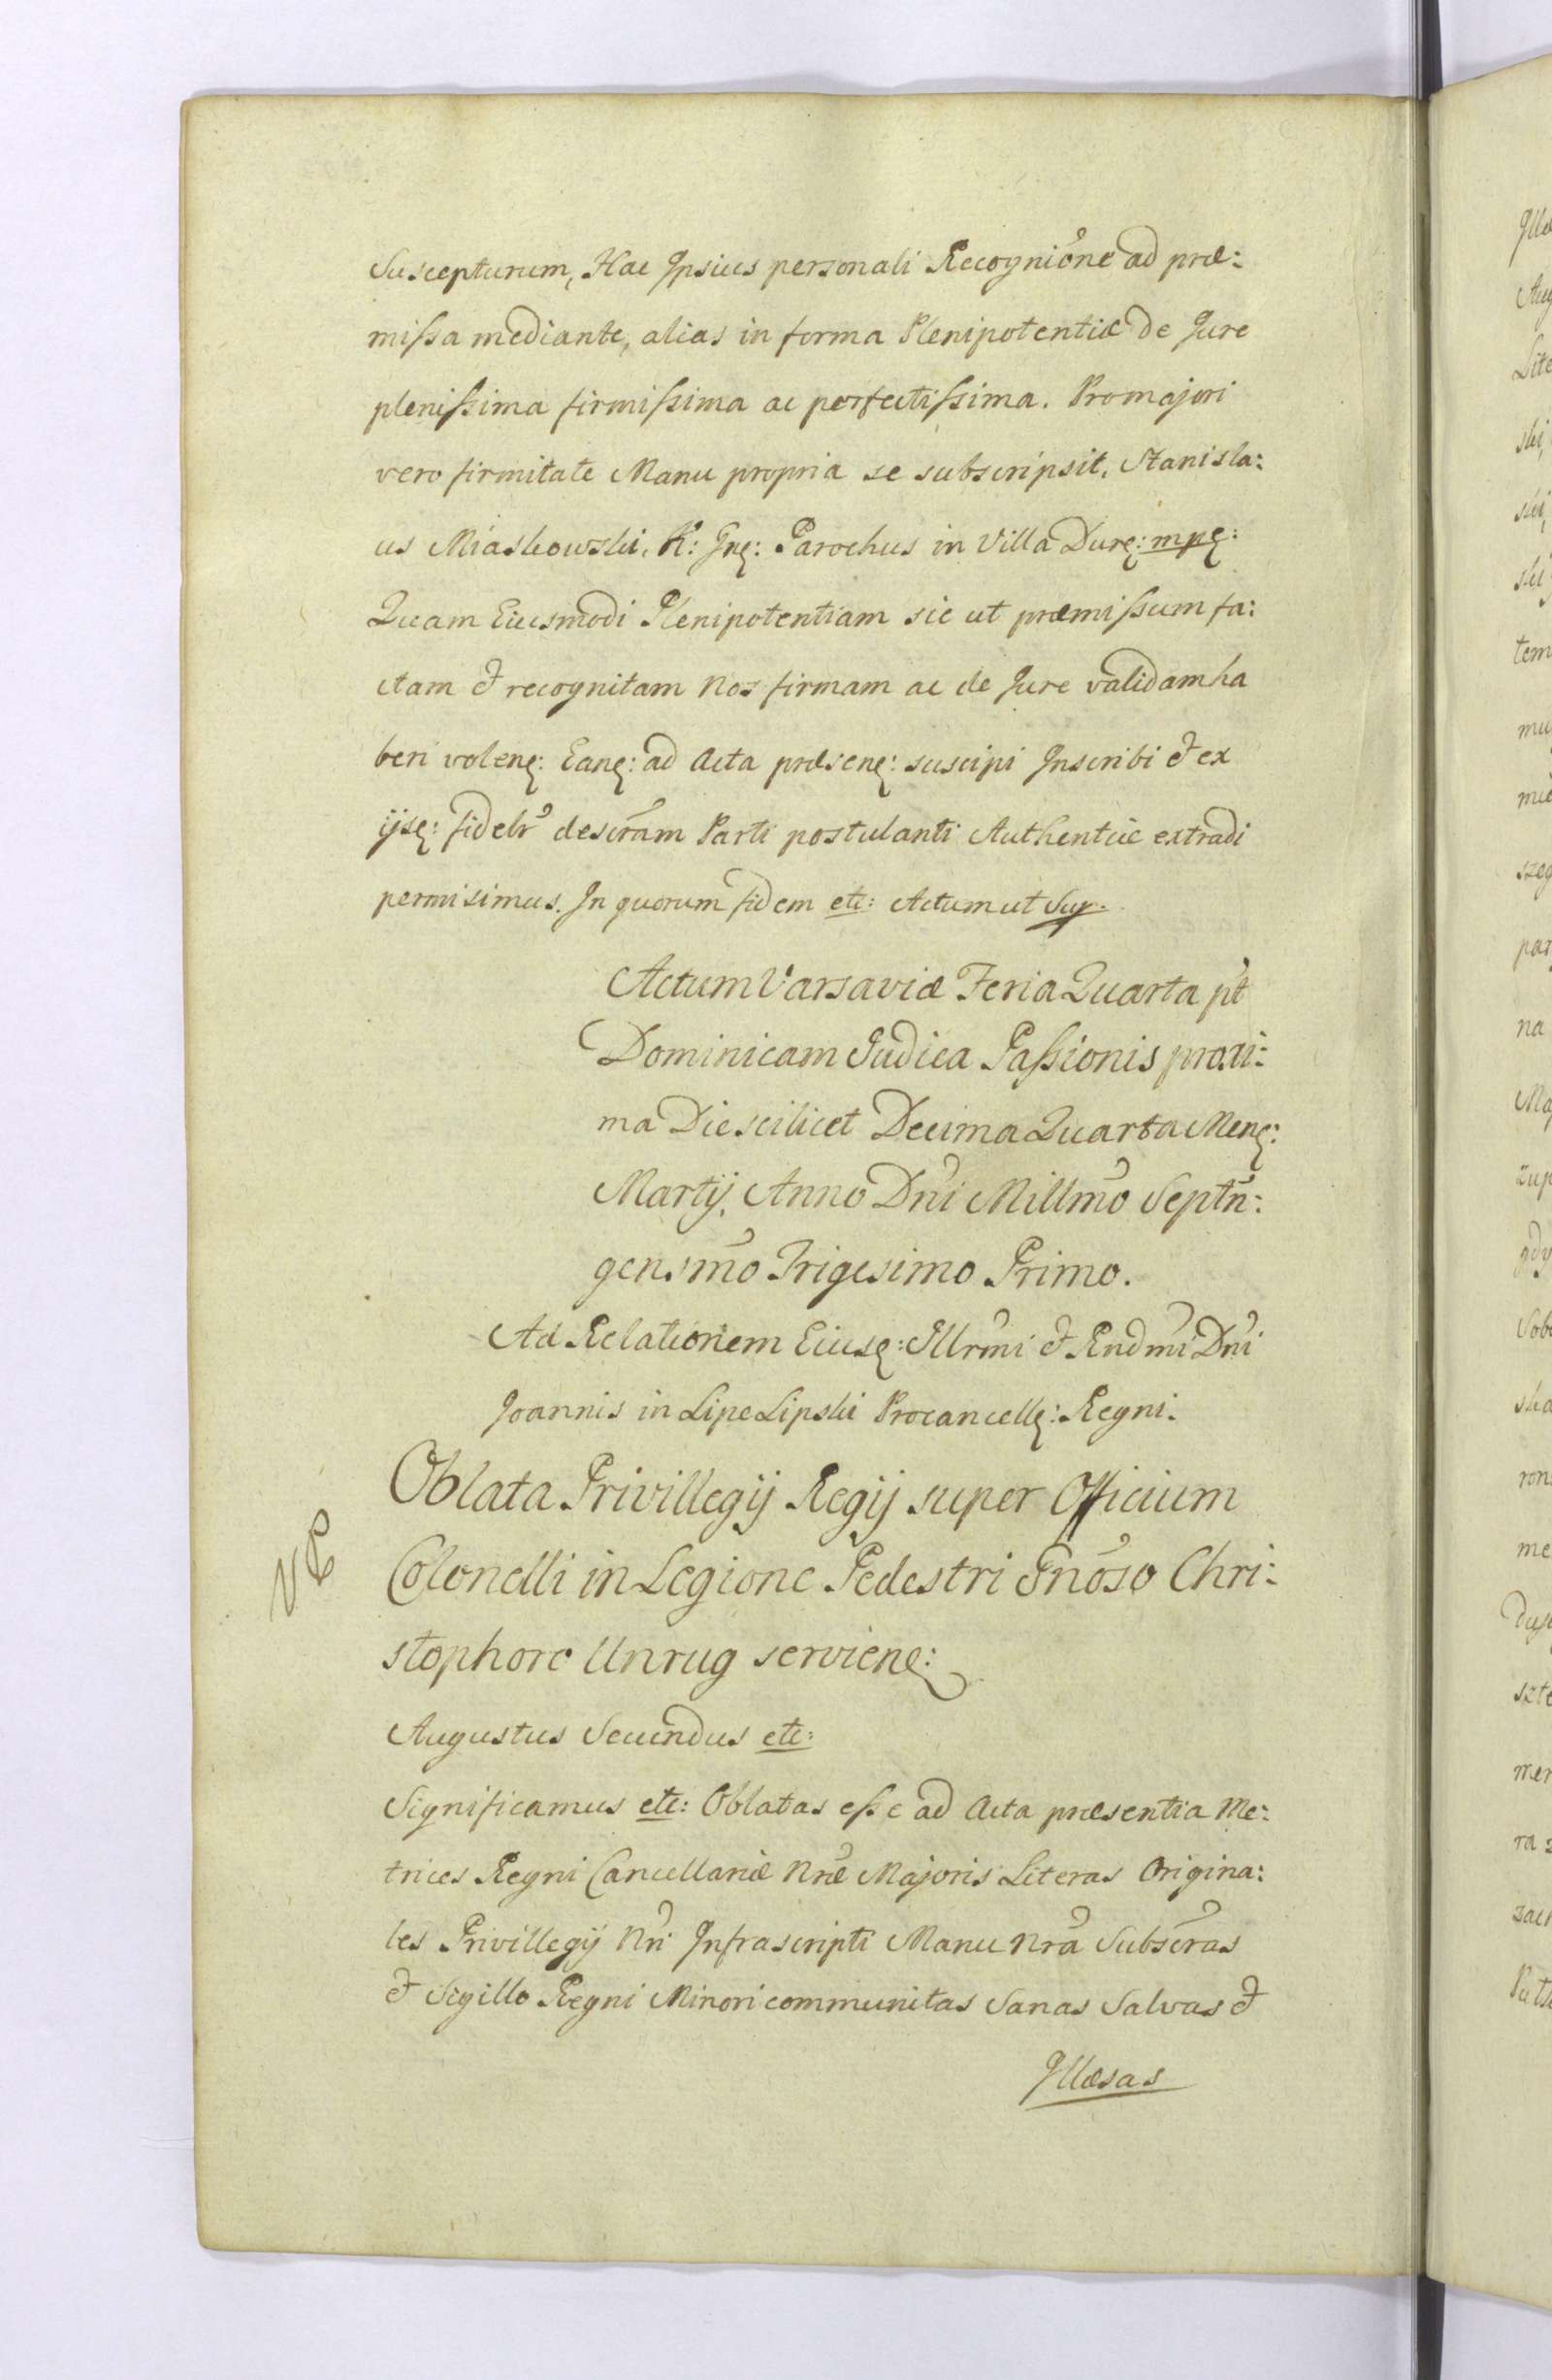 Suscepturum, Hac Ipsius personali Recogni͠one ad præ:
missa mediante, alias in forma Plenipotentiæ de Jure
plenissima firmissima ac perfectissima. Pro majori
vero firmitate Manu propria se subscripsit, Stanisla:
us Miaskowski, K: Gnę: Parochus in Villa Durę: mpę:
Quam Eiusmodi Plenipotentiam sic ut præmissum fa:
ctam & recognitam Nos firmam ac de Jure validam ha
beri volenę: Eanę: ad Acta præsenę: suscipi Inscribi & ex
ijsę: fidelr͠ descr͠am Parti postulanti Authentice extradi
permisimus. In quorum fidem etc: Actum ut Sup.
Actum Varsaviæ Feria Quarta pt͠
Dominicam Judica Passionis proxi:
ma Die scilicet Decima Quarta Menę:
Martij, Anno Dn͠i Millm͠o Septn͠:
gensm͠o Trigesimo Primo.
Ad Relationem Eiusę: Illrm͠i & Rndm͠i Dn͠i
Joannis in Lipe Lipski Procancellę: Regni.
Oblata Privillegij Regij super Officium
Colonelli in Legione Pedestri Gn͠oso Chri:
stophoro Unrug servienę:
Augustus Secundus etc:
Significamus etc: Oblatas esse ad Acta præsentia Me:
trices Regni Cancellariæ Nr͠æ Majoris Literas Origina:
les Privillegij Nr͠i Infrascripti Manu Nr͠a Subscr͠as
& Sigillo Regni Minori communitas Sanas Salvas &
Illæsas